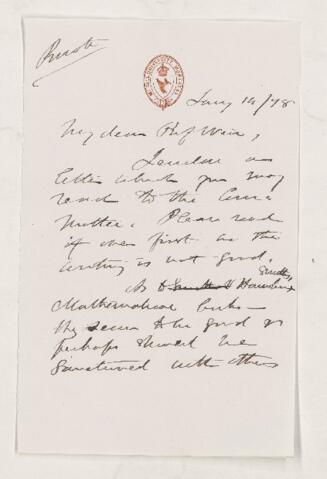 Private
McGILL UNIVERSITY MONTREAL
Jany 14/78
My dear Prof Weir,
I enclose a
letter which you may
read to the Com
mittee. Please read
it over first as the
writing is not good.
As to Smith's
Mathematical books
they seem to be good &
perhaps should be
sanctioned with others